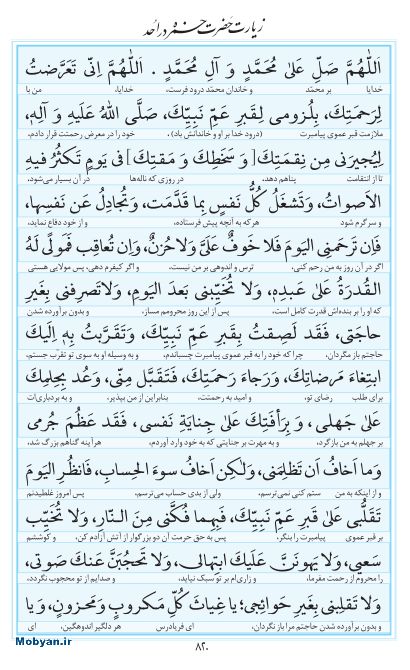 زیارت حضرت حمزه در اُحُد
اَللّٰهُمَّ صَلِّ عَلىٰ مُحَمَّدٍ وَ آلِ مُحَمَّدٍ . اَللّٰهُمَّ اِنّى تَعَرَّضتُ
خدایا بر محمّد و خاندان محمّد درود فرست، خدایا، من با
لِرَحمَتِكَ، بِلُزومى لِقَبرِ عَمِّ نَبِيِّكَ، صَلَّى اللهُ عَلَيهِ وَ آلِهٖ،
ملازمت قبر عموی پیامبرت (درود خدا بر او و خاندانش باد)، خود را در معرض رحمتت قرار دادم،
لِيُجيرَنى مِن نِقمَتِكَ [وَ سَخَطِكَ وَ مَقتِكَ] فى يَومٍ تَكثُرُ فيهِ
تا از انتقامت پناهم دهد، در روزی که ناله‌ها در آن بسیار می‌شود،
الاَصواتُ، وَتَشغَلُ كُلُّ نَفسٍ بِما قَدَّمَت، وَتُجادِلُ عَن نَفسِها،
و سرگرم شود هر که به آنچه پیش فرستاده، و از خود دفاع نماید،
فَاِن تَرحَمنِى اليَومَ فَلا خَوفٌ عَلَىَّ وَلا حُزنٌ، وَاِن تُعاقِب فَمَولًى لَهُ
اگر در آن روز به من رحم کنی، ترس و اندوهی بر من نیست، و اگر کیفرم دهی، پس مولایی هستی
القُدرَةُ عَلىٰ عَبدِهٖ، وَلا تُخَيِّبنى بَعدَ اليَومِ، وَلاتَصرِفنى بِغَيرِ
که او را بر بنده‌اش قدرت کامل است، پس از این روز محرومم مساز، و بدون برآورده شدن
حاجَتى، فَقَد لَصِقتُ بِقَبرِ عَمِّ نَبِيِّكَ، وَتَقَرَّبتُ بِهٖ اِلَيكَ
حاجتم باز مگردان، چرا که خود را به قبر عموی پیامبرت چسباندم، و به وسیله او به سوی تو تقرب جستم،
ابتِغاءَ مَرضاتِكَ، وَرَجاءَ رَحمَتِكَ، فَتَقَبَّل مِنّى، وَعُد بِحِلمِكَ
برای طلب رضای تو، و امید به رحمتت، بنابراین از من بپذیر، و به بردباری‌ات
عَلىٰ جَهلى ، وَ بِرَأفَتِكَ عَلىٰ جِنايَةِ نَفسى ، فَقَد عَظُمَ جُرمى
بر جهلم به من بازگرد، و به مهرت بر جنایتی که به خود وارد آوردم، هرآینه گناهم بزرگ شد،
وَما اَخافُ اَن تَظلِمَنى، وَلٰكِن اَخافُ سوءَ الحِسابِ، فَانظُرِ اليَومَ
و از اینکه به من ستم کنی نمی‌ترسم، ولی از بدی حساب می‌ترسم، پس امروز غلطیدنم
تَقَلُّبى عَلىٰ قَبرِ عَمِّ نَبِيِّكَ، فَبِهِما فُكَّنى مِنَ النّارِ، وَلا تُخَيِّب
بر قبر عموی پیامبرت را بنگر، پس به حق حرمت آن دو بزرگوار از آتش آزادم کن، و کوششم
سَعيى، وَلايَهونَنَّ عَلَيكَ ابتِهالى، وَلا تَحجُبَنَّ عَنكَ صَوتى،
را محروم از رحمت مفرما، و زاری‌ام بر تو سبک نیاید، و صدایم از تو محجوب نگردد،
وَلا تَقلِبنى بِغَيرِ حَوائِجى؛ يا غِياثَ كُلِّ مَكروبٍ وَمَحزونٍ، وَ يا
و بدون برآورده شدن حاجتم مرا باز نگردان، ای فریادرس هر دلگیر اندوهگین، ای
۸۲۰
Mobyan.ir